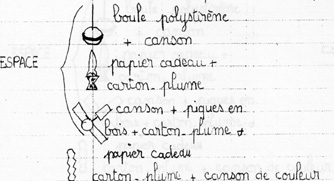 boule polystirène
+ canson
ESPACE
papier cadeau +
carton-plume
canson + piques en
bois + carton-plume +
papier cadeau
carton-plume + canson de couleur